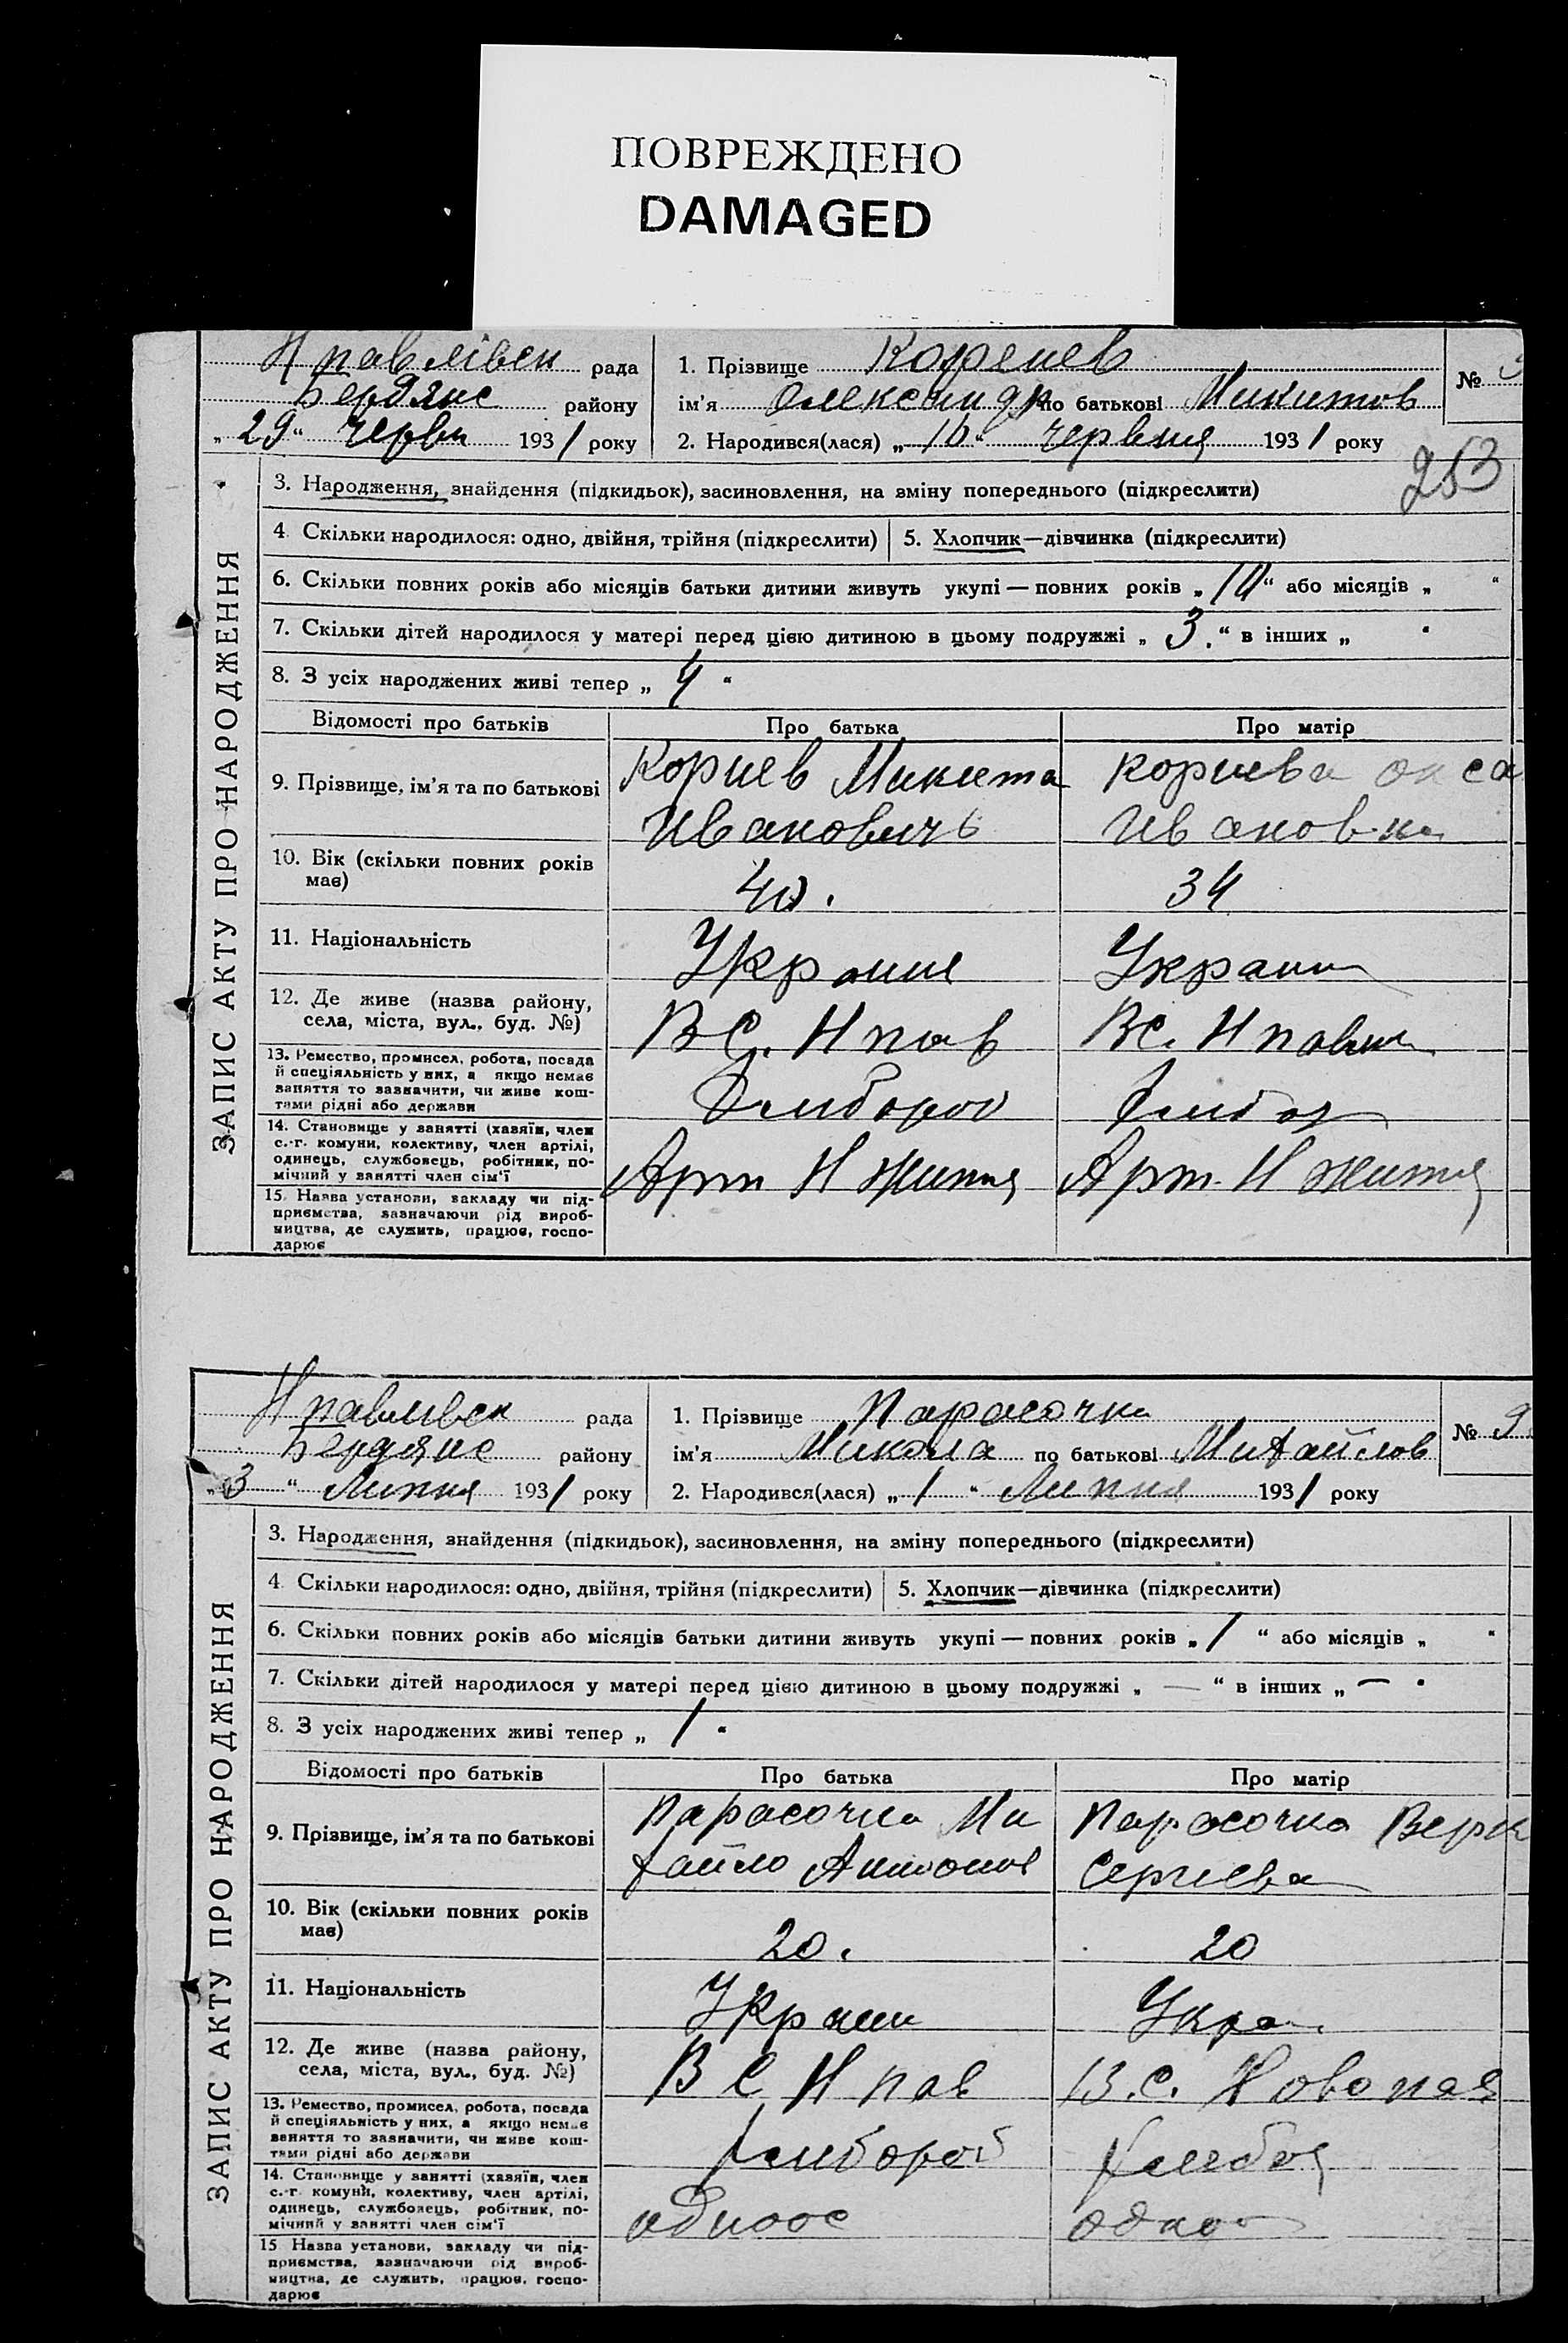 ПОВРЕЖДЕНО
DAMAGED
Н павлівск рада
Бердянс районy
„29“ Червн 1931 року
1. Прізвище Корнев
ім'я Олександр по батькові Микитов
2. Народився(лася) „16“ червня 1931 року
№
253
ЗАПИС АКТУ ПРО НАРОДЖЕННЯ
3. Народження, знайдення (підкидьок), засиновлення, на зміну попереднього (підкреслити)
4. Скільки народилося: одно, двійня, трійня (підкреслити)
5. Хлопчик—дівчинка (підкреслити)
6. Скільки повних років або місяців батьки дитини живуть укупі — повних років „ “ або місяців „ “
7. Скільки дітей народилося у матері перед цією дитиною в цьому подружжі „3.“ в інших „ “
8. З усіх народжених живі тепер „4“
Відомості про батьків
Про батька
Про матір
9. Прізвище, ім'я та по батькові
Корнев Микита
Ивановичь
корнева окса
Ивановна
10. Вік (скільки повних років
має)
40.
34
11. Національність
Украин
Украин
12. Де живе (назва району,
села, міста, вул., буд. №)
ВС. Н пав
ВС. Н павли
13. Ремество, промисел, робота, посада
й спеціяльність у них, а якщо немає
заняття то зазначити, чи живе кош-
тами рідні або держави
Хлибороб
Хлибор
14. Становище у занятті (хазяїн, член
с.-г. комуни, колективу, член артілі,
одинець, службовець, робітник, по-
мічний у занятті член сім'ї
Арт Н Життя
Арт. Н Життя
15. Назва установи, закладу чи під-
приємства, зазначаючи рід вироб-
ництва, де служить, працює, госпо-
дарює
Н павливск рада
Бердянс району
„3“ Липня 1931 року
1. Прізвище Парасочка
ім'я Микола по батькові Михайлов
2. Народився(лася) „1“ Липня 1931 року
№ 9
ЗАПИС АКТУ ПРО НАРОДЖЕННЯ
3. Народження, знайдення (підкидьок), засиновлення, на зміну попереднього (підкреслити)
4. Скільки народилося: одно, двійня, трійня (підкреслити)
5. Хлопчик—дівчинка (підкреслити)
6. Скільки повних років або місяців батьки дитини живуть укупі — повних років „1“ або місяців „ “
7. Скільки дітей народилося у матері перед цією дитиною в цьому подружжі „—“ в інших „—“
8. З усіх народжених живі тепер „1“
Відомості про батьків
Про батька
Про матір
9. Прізвище, ім'я та по батькові
Парасочка Ми
хайло Антонов
Парасочка Вера
Сергиева
10. Вік (скільки повних років
має)
20.
20
11. Національність
Украин
Укра
12. Де живе (назва району,
села, міста, вул., буд. №)
В С Н пав
В.С. Новопав
13. Ремество, промисел, робота, посада
й спеціяльність у них, а якщо немає
заняття то зазначити, чи живе кош-
тами рідні або держави
Хлибороб
Хлибор
14. Становище у занятті (хазяїн, член
с.-г. комуни, колективу, член артілі,
одинець, службовець, робітник, по-
мічний у занятті член сім'ї
одноос
одноо
15 Назва установи, закладу чи під-
приємства, зазначаючи рід вироб-
ництва, де служить, працює, госпо-
дарює